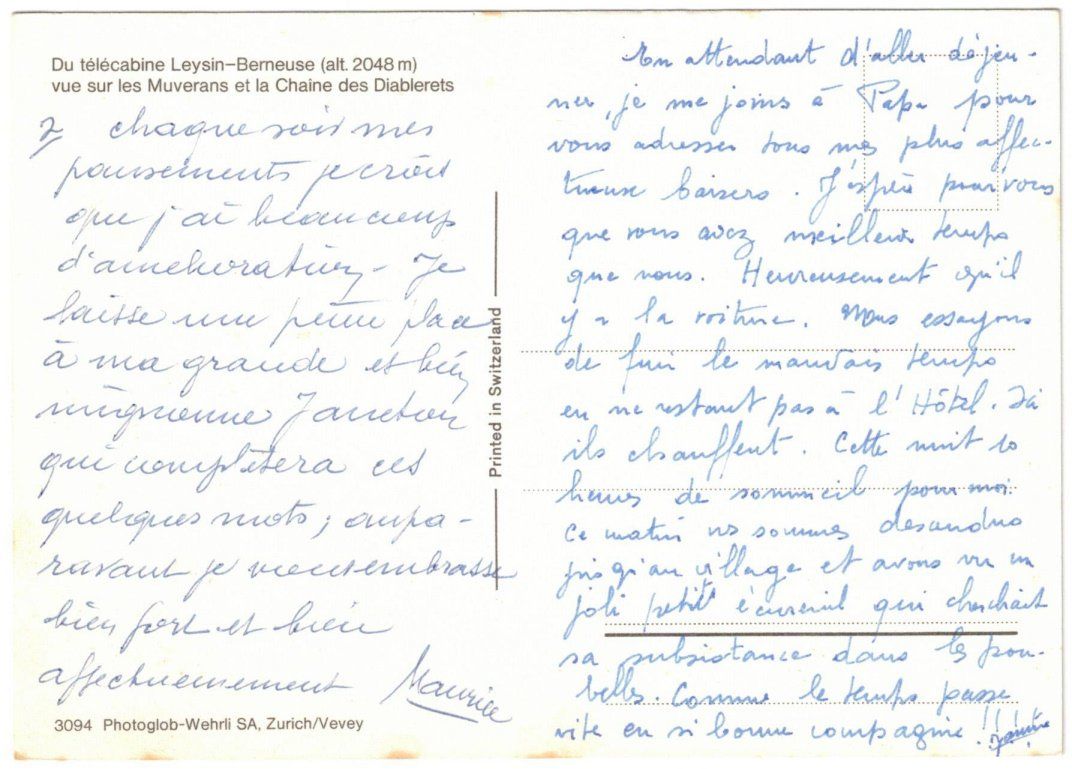 Du télécabine Leysin–Berneuse (alt. 2048 m)
vue sur les Muverans et la Chaîne des Diablerets
chaque soir mes
pansements je crois
que j'ai beaucoup
d'amélioration – Je
laisse une petite place
à ma grande et bien
mignonne Janeton
qui complètera ces
quelques mots ; aupa-
ravant je viens embrasse
bien fort et bien
affectueusement Maurice
3094 Photoglob-Wehrli SA, Zurich/Vevey
Printed in Switzerland
En attendant d'aller déjeu-
ner, je me joins à Papa pour
vous adresser tous mes plus affec-
tueux baisers. J'espère pour vous
que vous avez meilleur temps
que nous. Heureusement qu'il
y a la voiture. Nous essayons
de fuir le mauvais temps
en ne restant pas à l'Hôtel. Ici
ils chauffent. Cette nuit 10
heures de sommeil pour moi.
Ce matin ns sommes descendus
jusqu'au village et avons vu un
joli petit écureuil qui cherchait
sa subsistance dans les pou-
belles. Comme le temps passe
vite en si bonne compagnie !!